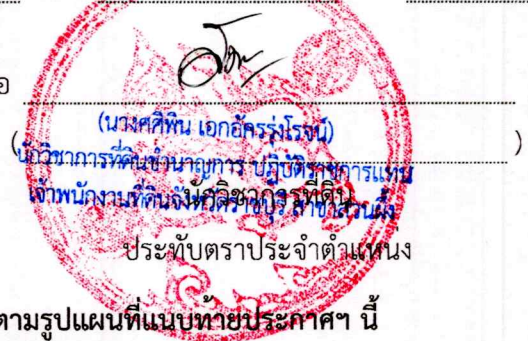 อ
(นางศศิพิน เอกอัครรุ่งโรจน์)
นักวิชาการที่ดินชำนาญการ ปฏิบัติราชการแทน
เจ้าพนักงานที่ดินจังหวัดราชบุรี สาขาสวนผึ้ง
นักวิชาการที่ดิน
ประทับตราประจำตำแหน่ง
ตามรูปแผนที่แนบท้ายประกาศฯ นี้